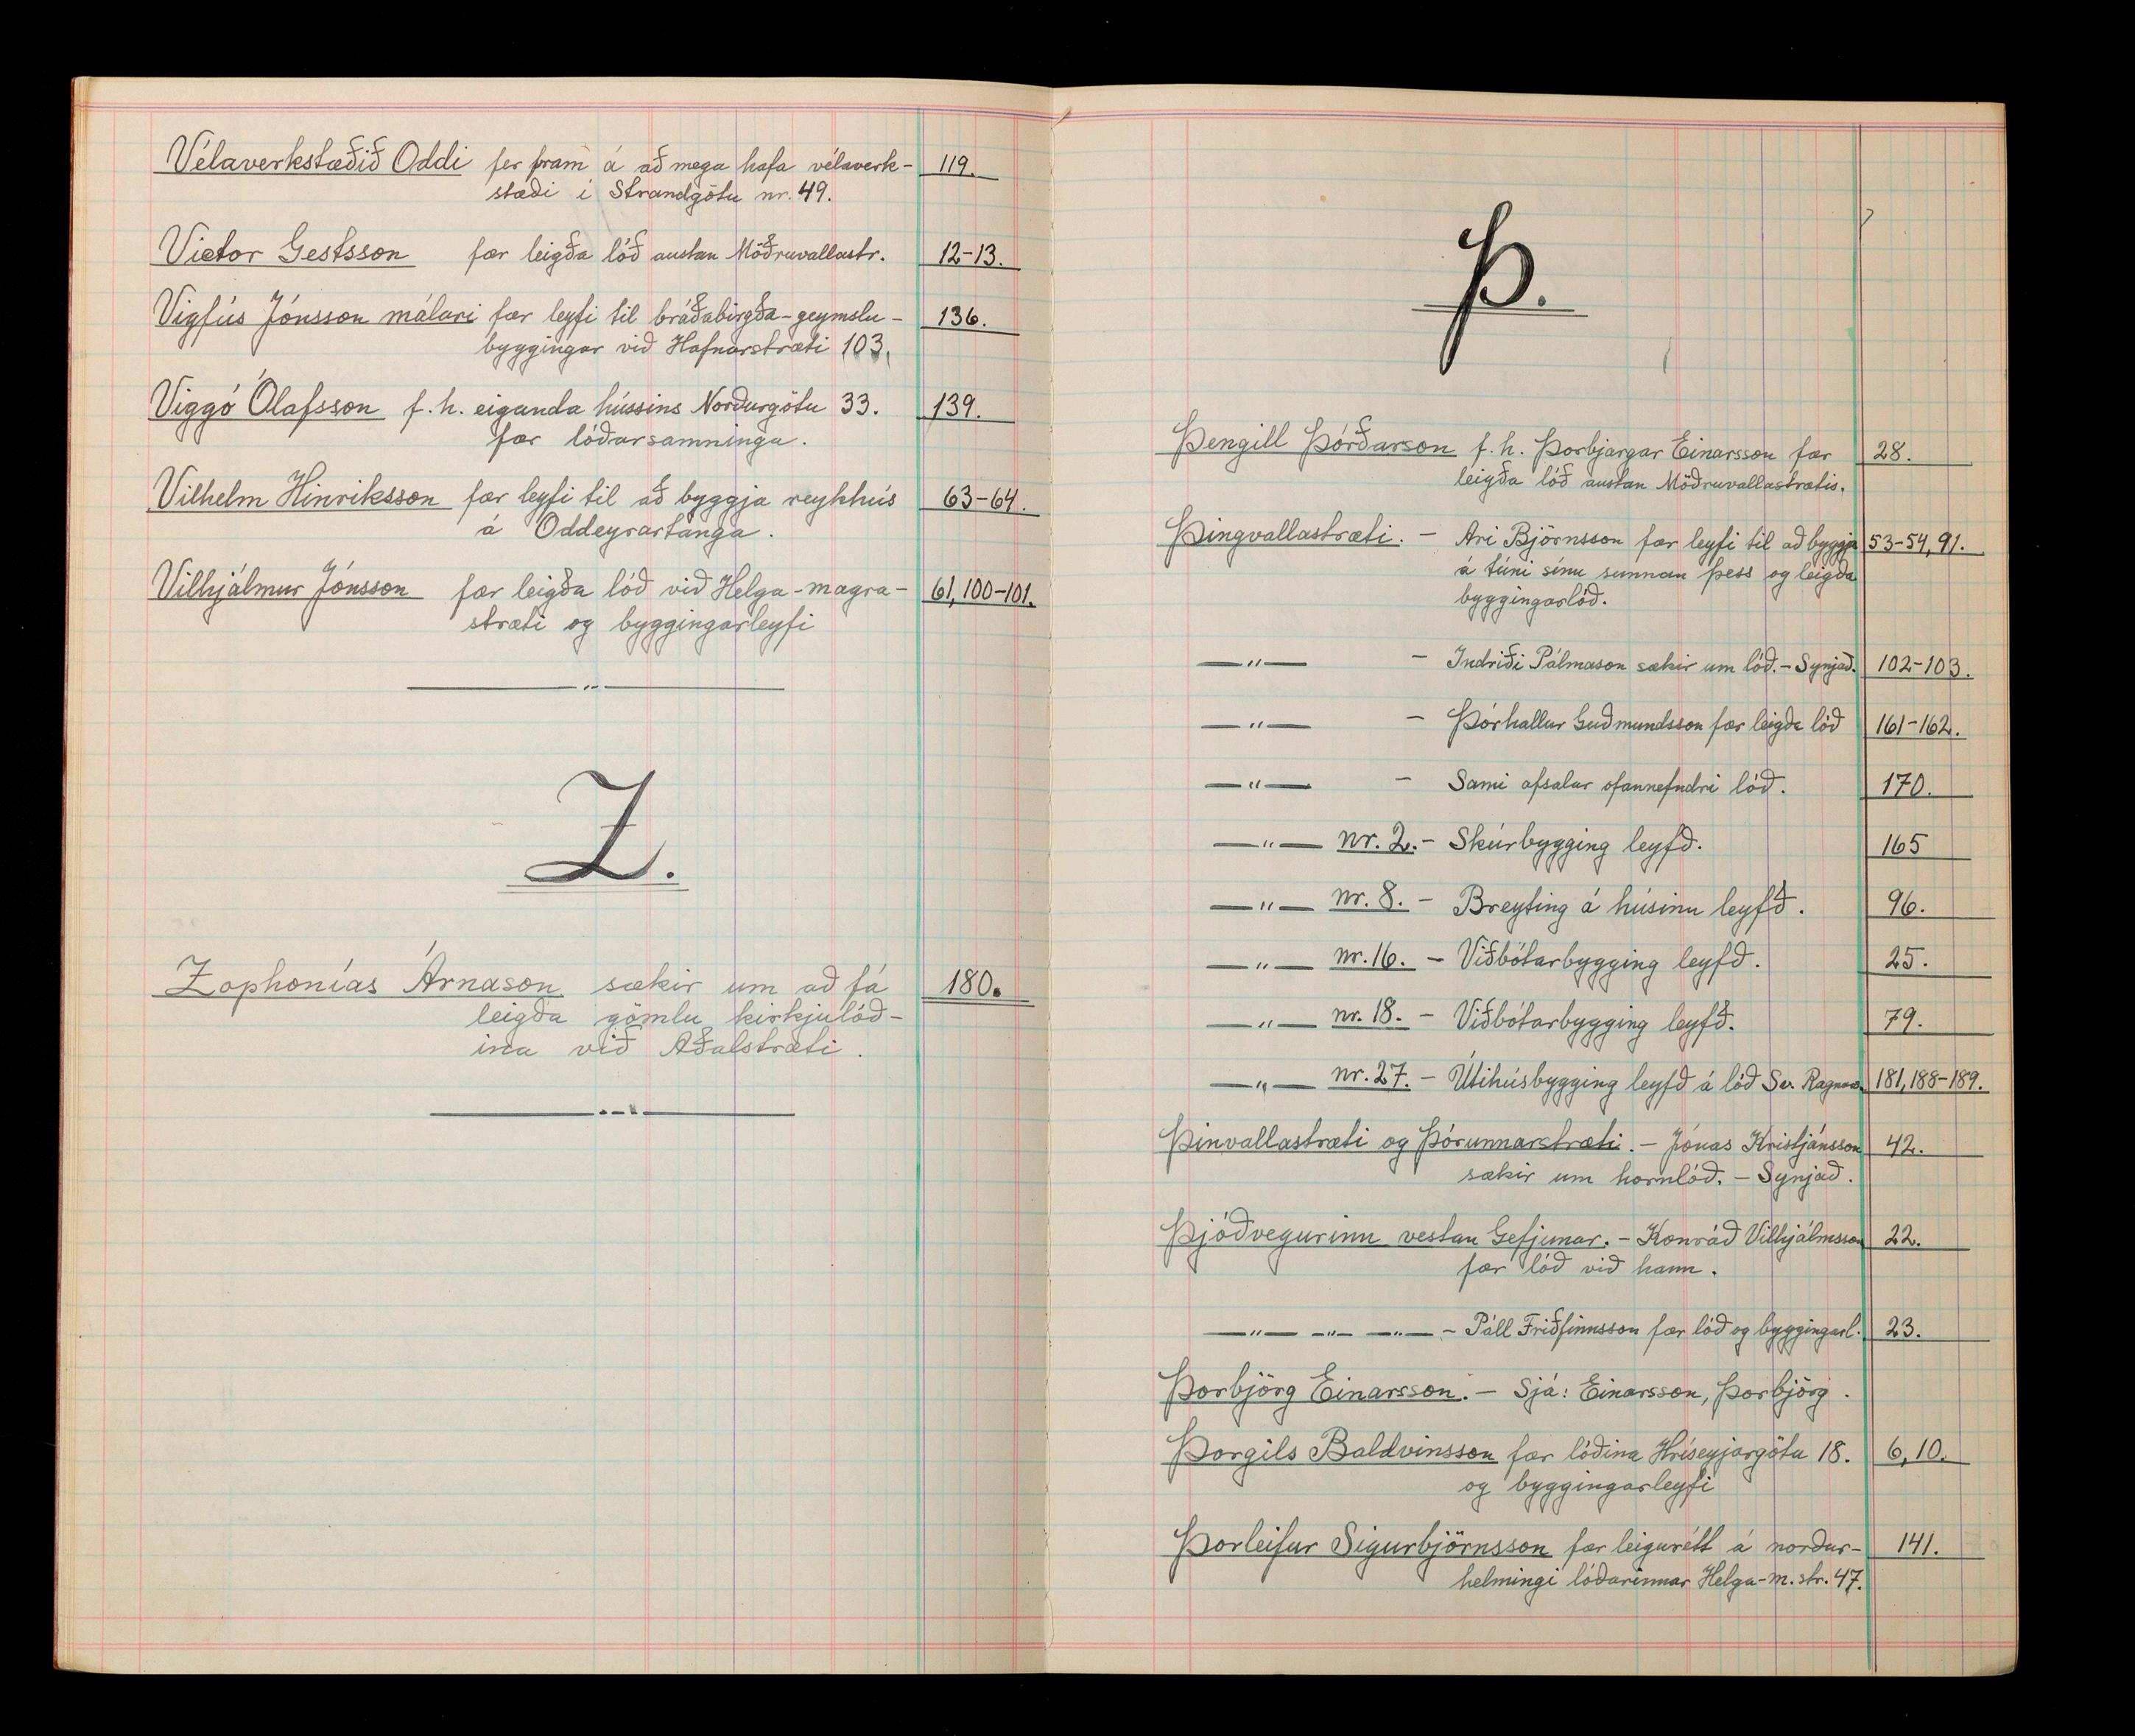 Vélaverkstæðið Oddi fer fram á að mega hafa vélaverk- 119.
stæði í Strandgötu nr. 49.
Victor Gestsson fær leigða lóð austan Möðruvallastr. 12-13.
Vigfús Jónsson málari fær leyfi til bráðabirgða-geymslu- 136.
byggingar við Hafnarstræti 103.
Viggó Ólafsson f.h. eiganda hússins Norðurgötu 33. 139.
fær lóðarsamninga.
Vilhelm Hinriksson fær leyfi til að byggja reykhús 63-64.
á Oddeyrartanga.
Vilhjálmur Jónsson fær leigða lóð við Helga-magra- 61, 100-101.
stræti og byggingarleyfi
—„—
Z.
Zophonías Árnason sækir um að fá 180.
leigða gömlu kirkjulóð-
ina við Aðalstræti.
Þ.
Þengill Þórðarson f.h. Þorbjargar Einarsson fær 28.
leigða lóð austan Möðruvallastrætis.
Þingvallastræti. - Ari Björnsson fær leyfi til að byggja 53-54, 91.
á túni sínu sunnan þess og leigða
byggingarlóð.
—„— - Indriði Pálmason sækir um lóð. - Synjað. 102-103.
—„— - Þórhallur Guðmundsson fær leigða lóð 161-162.
—„— - Sami afsalar ofannefndri lóð. 170.
—„— nr. 2. - Skúrbygging leyfð. 165
—„— nr. 8. - Breyting á húsinu leyfð. 96.
—„— nr. 16. - Viðbótarbygging leyfð. 25.
—„— nr. 18. - Viðbótarbygging leyfð. 79.
—„— nr. 27. - Útihúsbygging leyfð á lóð Sv. Ragnars. 181, 188-189.
Þinvallastræti og Þórunnarstræti. - Jónas Kristjánsson 42.
sækir um hornlóð. - Synjað.
Þjóðvegurinn vestan Gefjunar. - Konráð Vilhjálmsson 22.
fær lóð við hann.
—„— —„— —„— - Páll Friðfinnsson fær lóð og byggingarl. 23.
Þorbjörg Einarsson. - Sjá: Einarsson, Þorbjörg.
Þorgils Baldvinsson fær lóðina Hríseyjargötu 18. 6, 10.
og byggingarleyfi
Þorleifur Sigurbjörnsson fær leigurétt á norður- 141.
helmingi lóðarinnar Helga-m.str. 47.